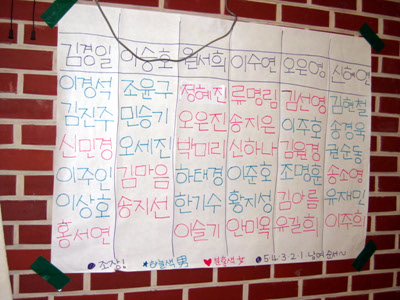 김경일 이승호 원서희 이수연 오은영 신혜연
이경석 조윤구 정혜진 류명림 김선영 김현철
김진수 민승기 오은진 송지은 이주호 송경욱
신민경 오세진 박미리 신하나 김윤경 권순동
이주인 김마음 하태경 이준호 조명훈 송소영
이상호 송지선 한기수 황지성 김아름 유재민
홍서연 이슬기 안미옥 유길희 이주희
조장! 하늘색 男 분홍색 女 5 4 3 2 1